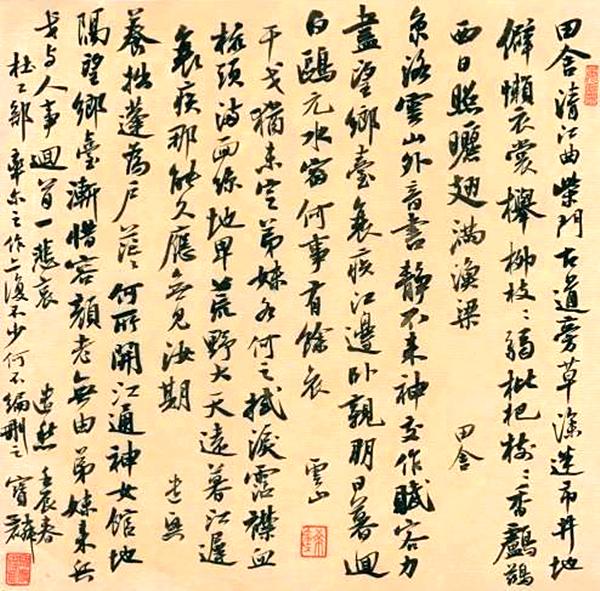 田舍清江曲柴門古道旁草深迷市井地
僻懶衣裳櫸柳枝〻弱枇杷樹〻香鸕鶿
西日照曬翅滿漁梁 田舍
京洛雲山外音書靜不來神交作賦客力
盡望鄉臺衰疾江邊卧親朋日暮迴
白鷗元水宿何事有餘哀 雲山
干戈猶未定弟妹各何之拭淚霑襟血
梳頭滿面絲地卑荒野大天遠暮江遲
衰疾那能久應無見汝期 遣興
養拙蓬為戶茫〻何所開江通神女館地
隔望鄉臺漸惜容顏老無由弟妹來兵
戈與人事迴首一悲哀 遣愁 壬辰春
杜工部率尔之作亦復不少何不編刪之 寶麟